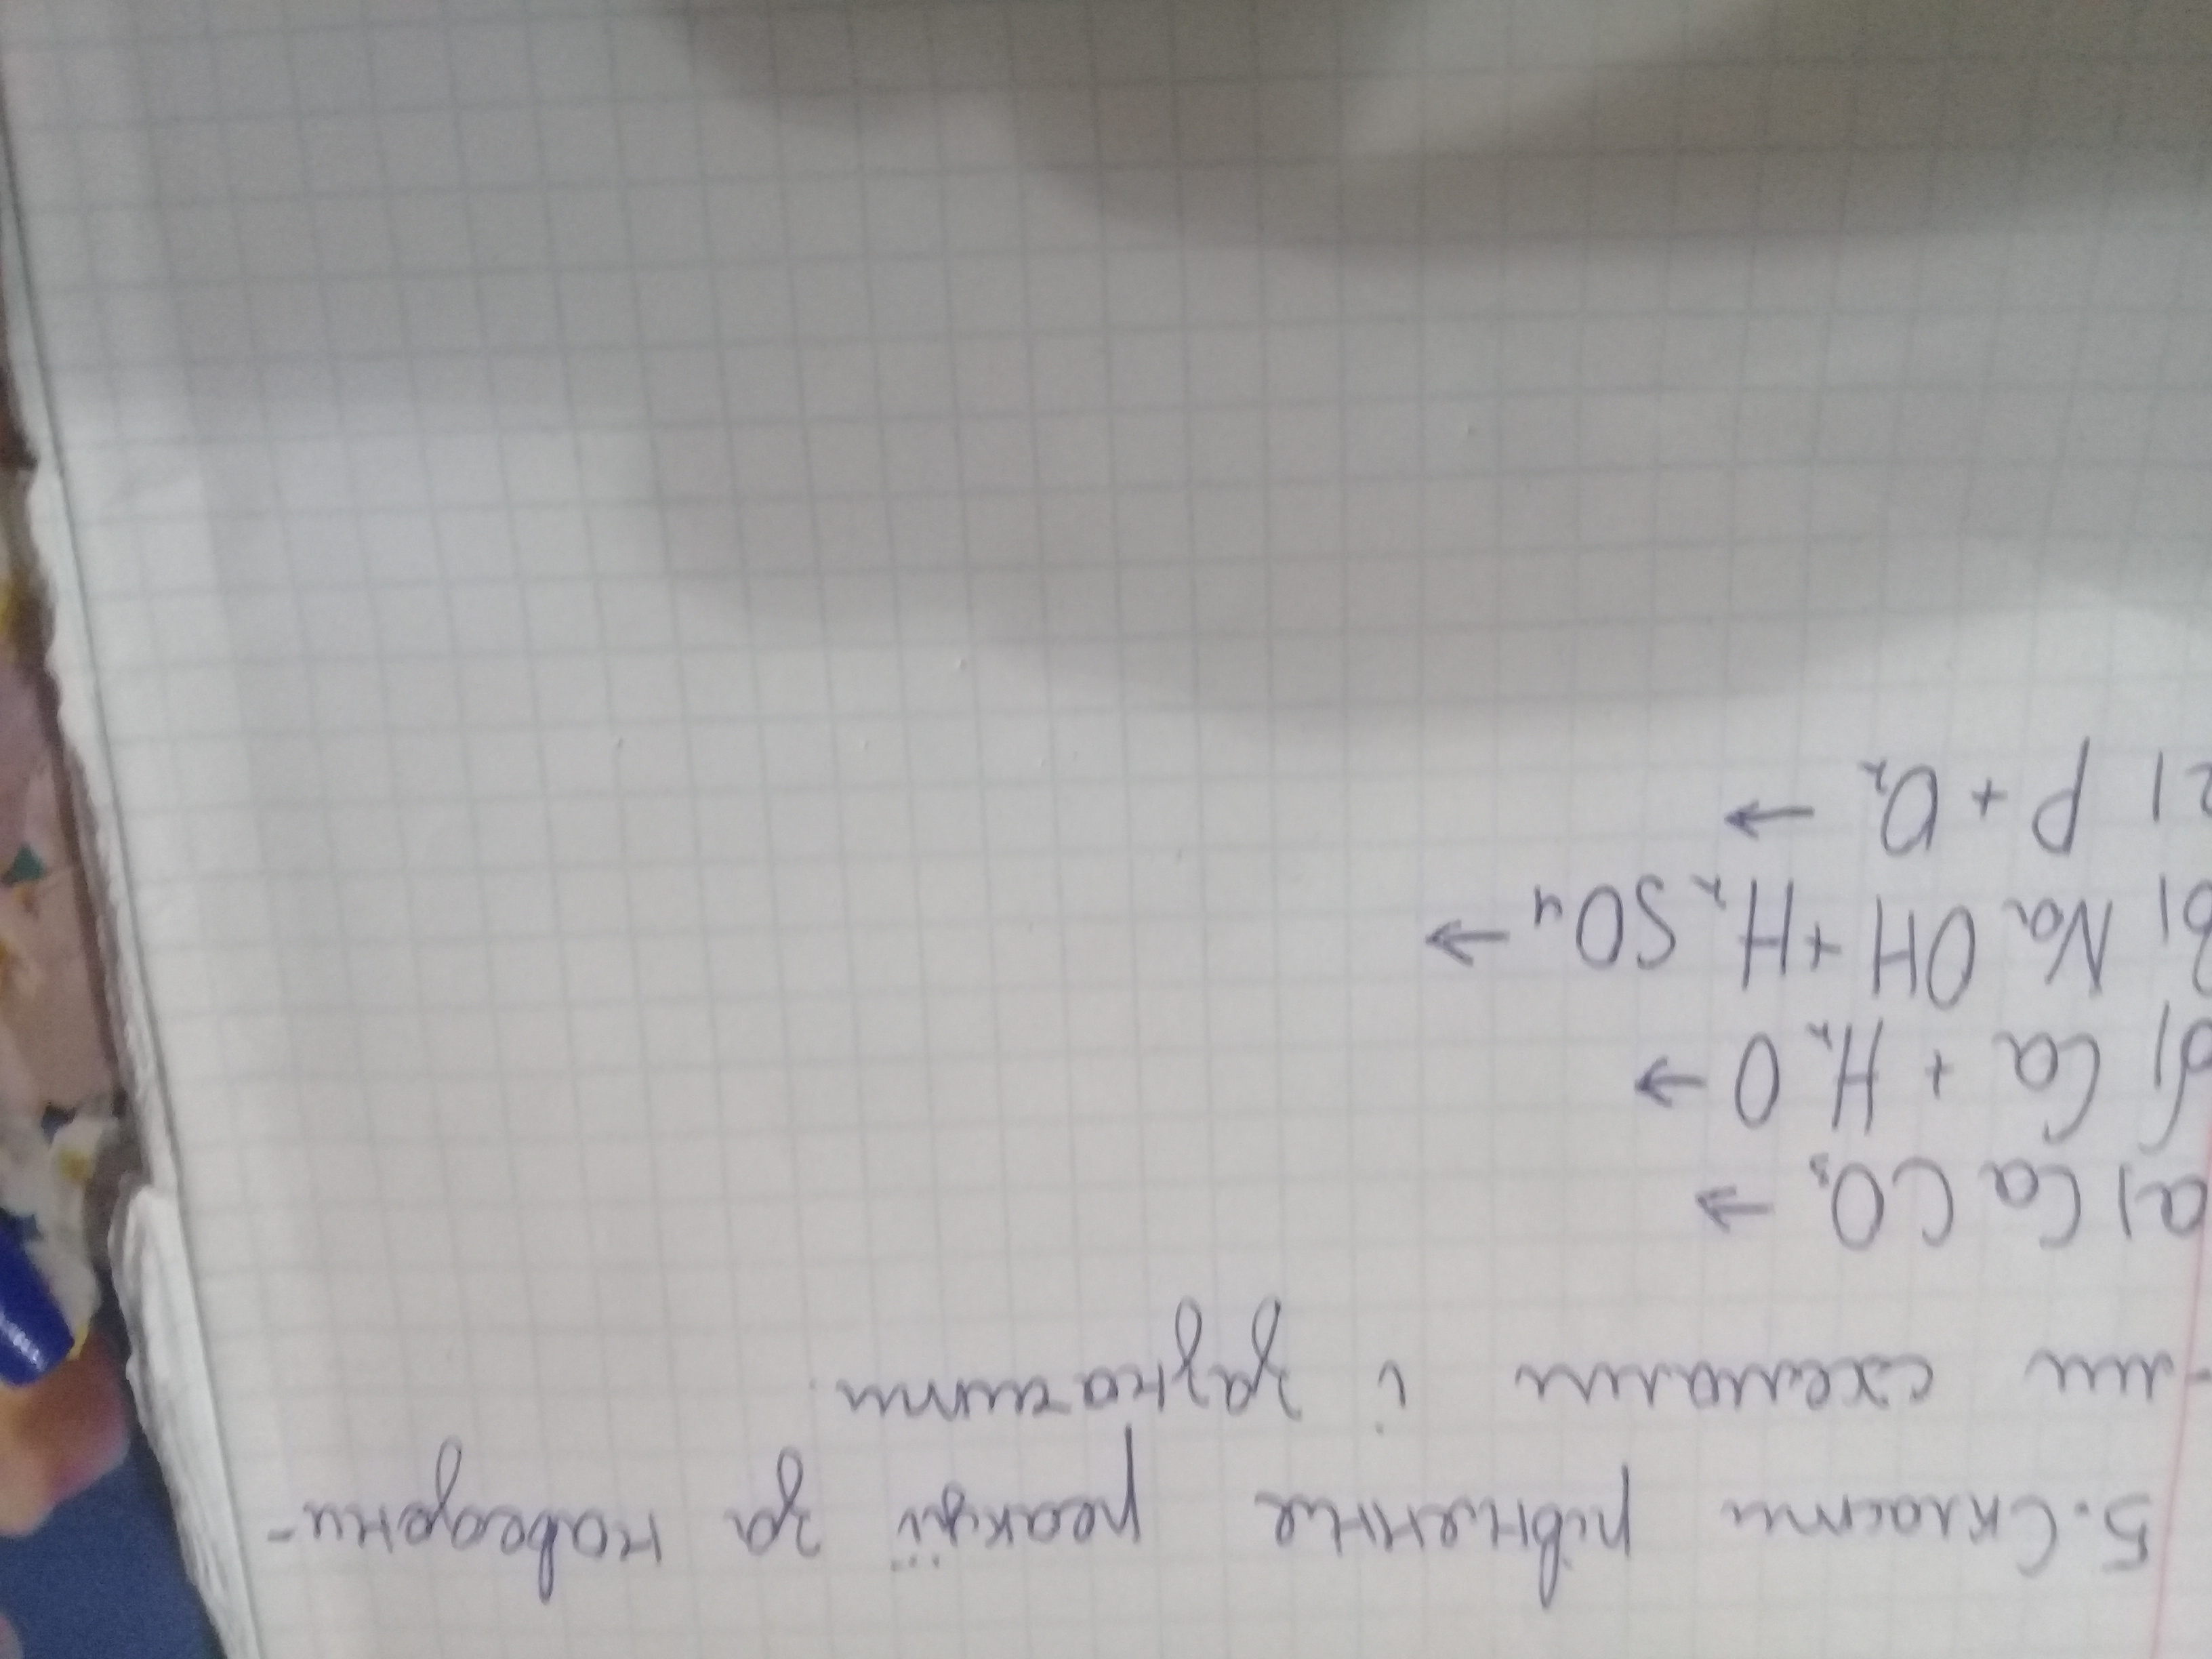 5. Скласти рівненне реакції за наведени-
-ми схемами і зазначити.
а) CaCO₃ →
б) Ca + H₂O →
в) NaOH + H₂SO₄ →
г) P + O₂ →